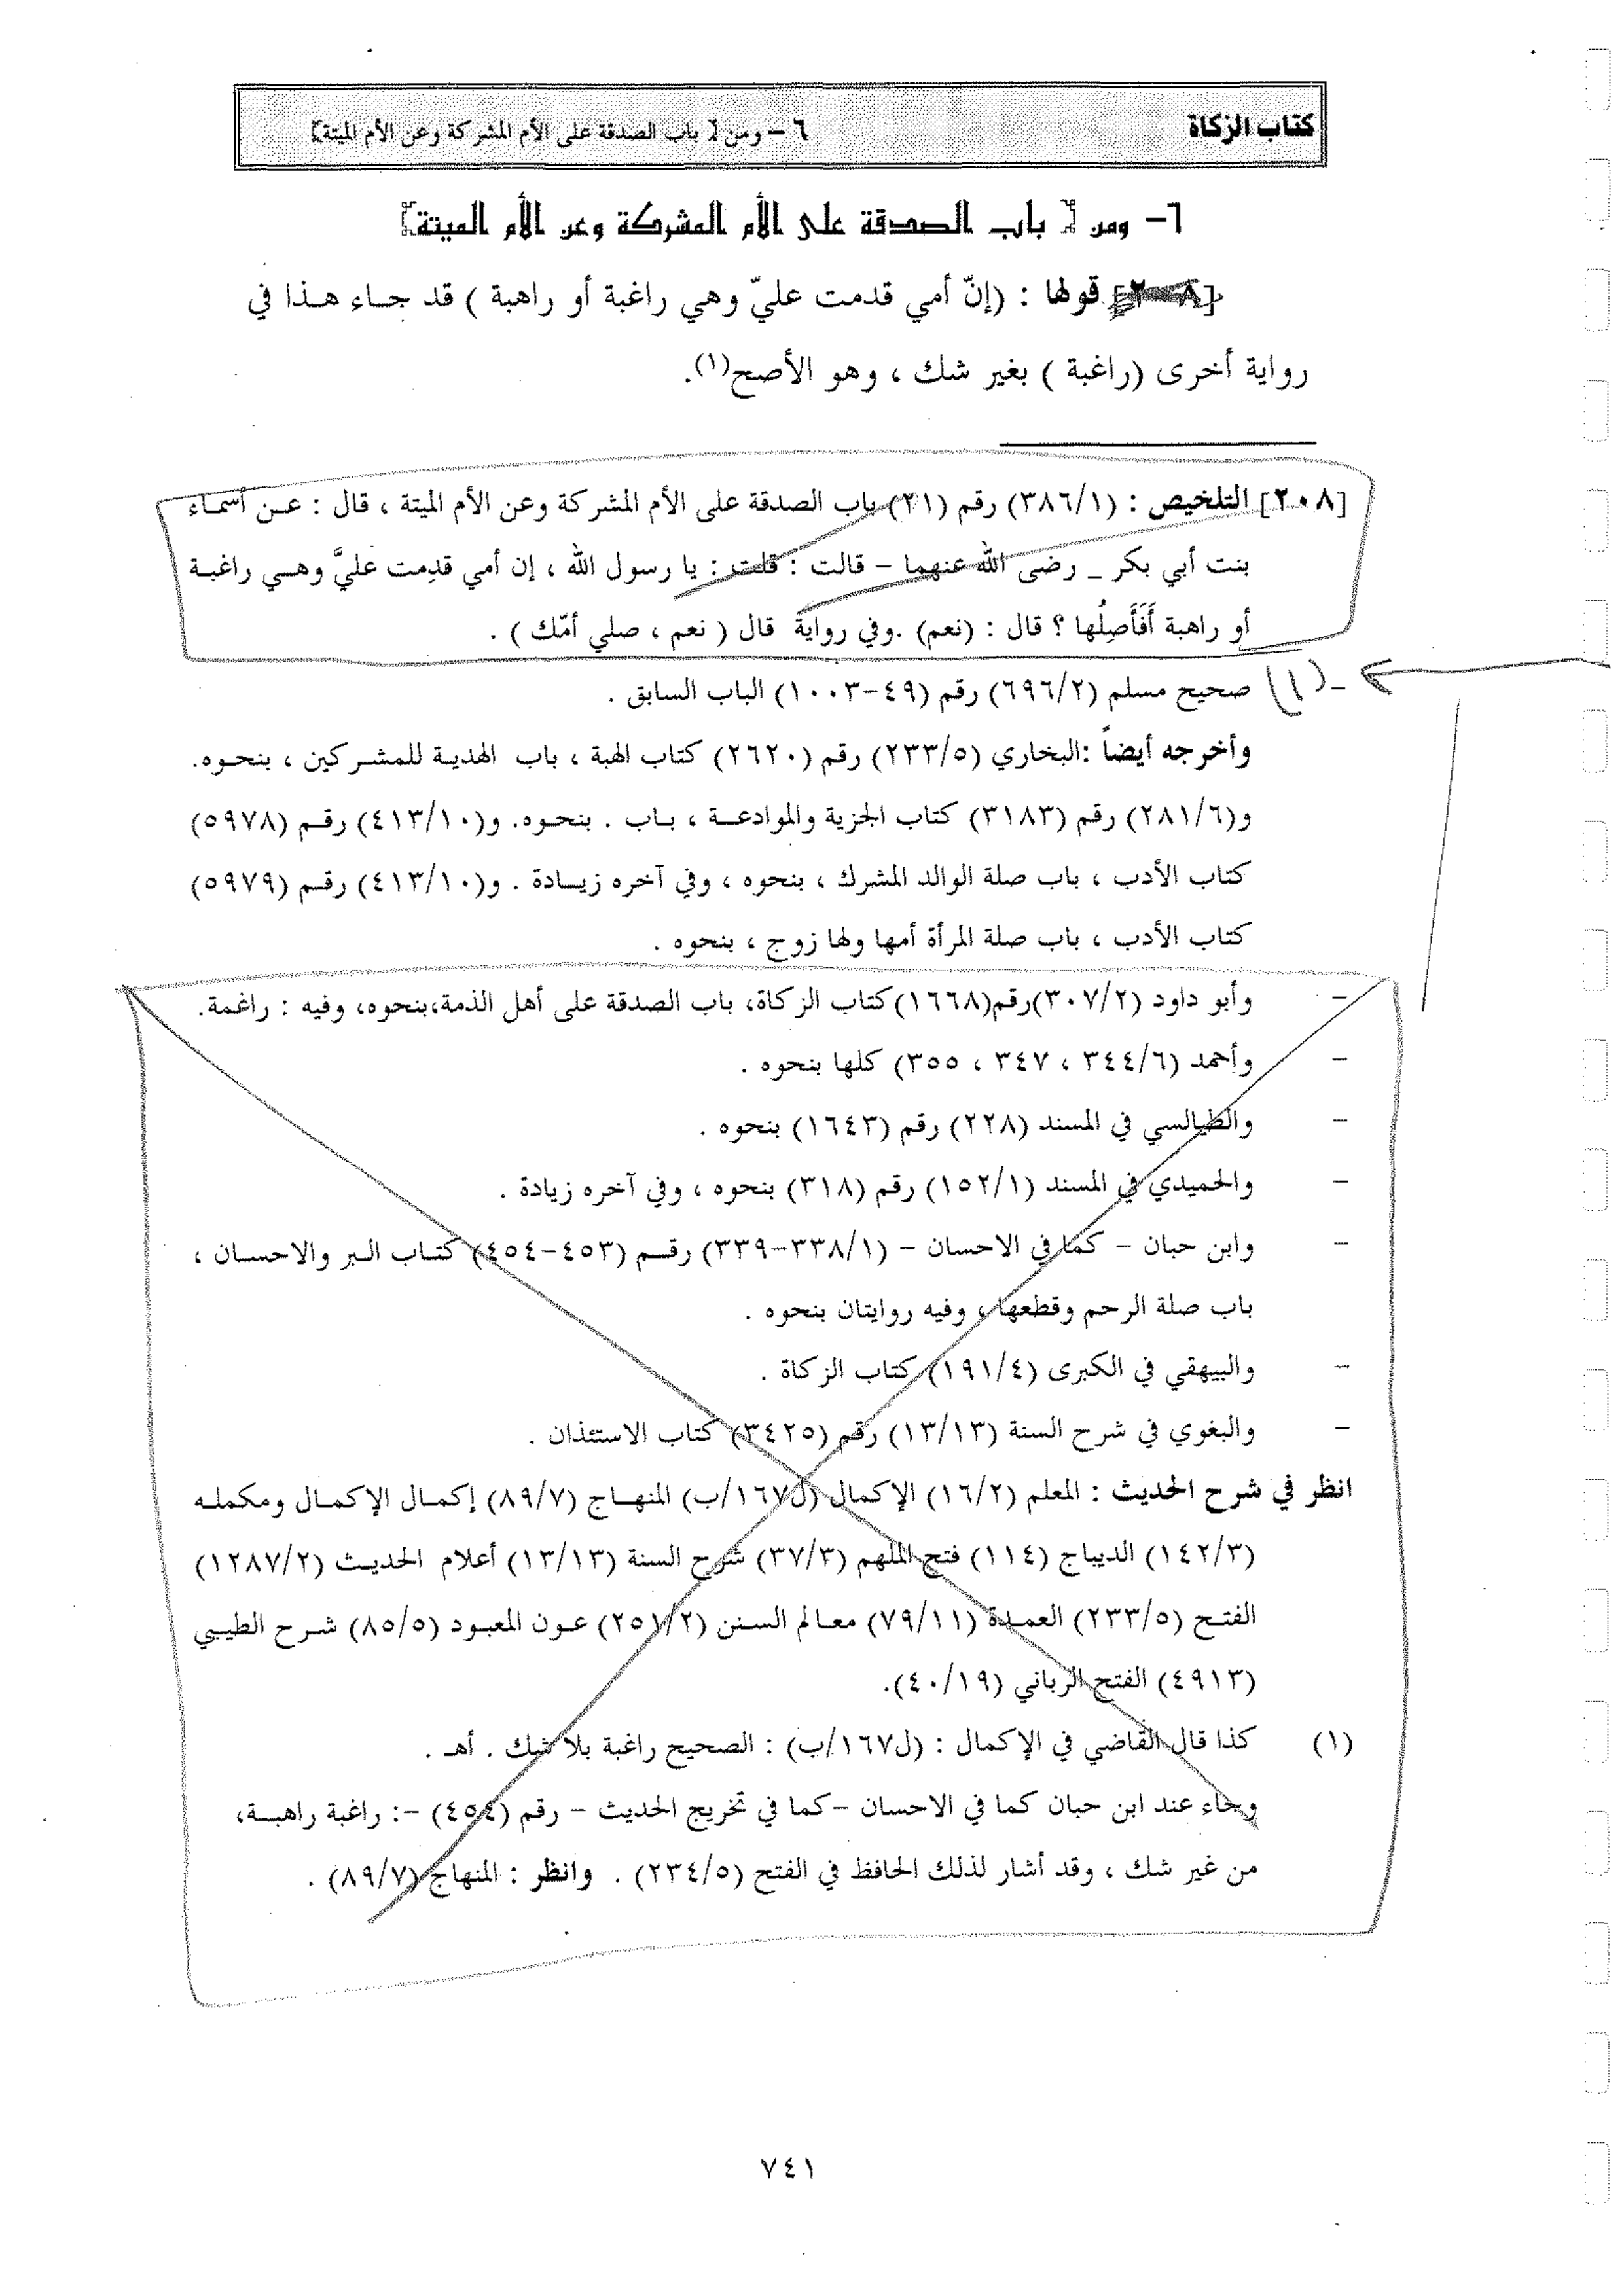 كتاب الزكاة
٦ – ومن [ باب الصدقة على الأم المشركة وعن الأم الميتة]
٦– ومن [ باب الصدقة على الأم المشركة وعن الأم الميتة]
[٢٠٨] قولها : (إنّ أمي قدمت عليّ وهي راغبة أو راهبة ) قد جاء هذا في
رواية أخرى (راغبة ) بغير شك ، وهو الأصح(١).
[٢٠٨] التلخيص : (٣٨٦/١) رقم (٢١) باب الصدقة على الأم المشركة وعن الأم الميتة ، قال : عن أسماء
بنت أبي بكر _ رضى الله عنهما – قالت : قلت : يا رسول الله ، إن أمي قدِمت عليَّ وهي راغبة
أو راهبة أَفَأَصِلُها ؟ قال : (نعم) .وفي رواية قال ( نعم ، صلي أمّك ) .
– (١) صحيح مسلم (٦٩٦/٢) رقم (٤٩–١٠٠٣) الباب السابق .
وأخرجه أيضاً :البخاري (٢٣٣/٥) رقم (٢٦٢٠) كتاب الهبة ، باب الهدية للمشركين ، بنحوه.
و(٢٨١/٦) رقم (٣١٨٣) كتاب الجزية والموادعة ، باب . بنحوه. و(٤١٣/١٠) رقم (٥٩٧٨)
كتاب الأدب ، باب صلة الوالد المشرك ، بنحوه ، وفي آخره زيادة . و(٤١٣/١٠) رقم (٥٩٧٩)
كتاب الأدب ، باب صلة المرأة أمها ولها زوج ، بنحوه .
– وأبو داود (٣٠٧/٢)رقم(١٦٦٨)كتاب الزكاة، باب الصدقة على أهل الذمة،بنحوه، وفيه : راغمة.
– وأحمد (٣٤٤/٦ ، ٣٤٧ ، ٣٥٥) كلها بنحوه .
– والطيالسي في المسند (٢٢٨) رقم (١٦٤٣) بنحوه .
– والحميدي في المسند (١٥٢/١) رقم (٣١٨) بنحوه ، وفي آخره زيادة .
– وابن حبان – كما في الاحسان – (٣٣٨/١–٣٣٩) رقم (٤٥٣–٤٥٤) كتاب البر والاحسان ،
باب صلة الرحم وقطعها ، وفيه روايتان بنحوه .
– والبيهقي في الكبرى (١٩١/٤) كتاب الزكاة .
– والبغوي في شرح السنة (١٣/١٣) رقم (٣٤٢٥) كتاب الاستئذان .
انظر في شرح الحديث : المعلم (١٦/٢) الإكمال (ل١٦٧/ب) المنهاج (٨٩/٧) إكمال الإكمال ومكمله
(١٤٢/٣) الديباج (١١٤) فتح الملهم (٣٧/٣) شرح السنة (١٣/١٣) أعلام الحديث (١٢٨٧/٢)
الفتح (٢٣٣/٥) العمدة (٧٩/١١) معالم السنن (٢٥١/٢) عون المعبود (٨٥/٥) شرح الطيبي
(٤٩١٣) الفتح الرباني (٤٠/١٩).
(١) كذا قال القاضي في الإكمال : (ل١٦٧/ب) : الصحيح راغبة بلا شك . أهـ .
وجاء عند ابن حبان كما في الاحسان –كما في تخريج الحديث – رقم (٤٥٤) –: راغبة راهبة،
من غير شك ، وقد أشار لذلك الحافظ في الفتح (٢٣٤/٥) . وانظر : المنهاج (٨٩/٧) .
٧٤١